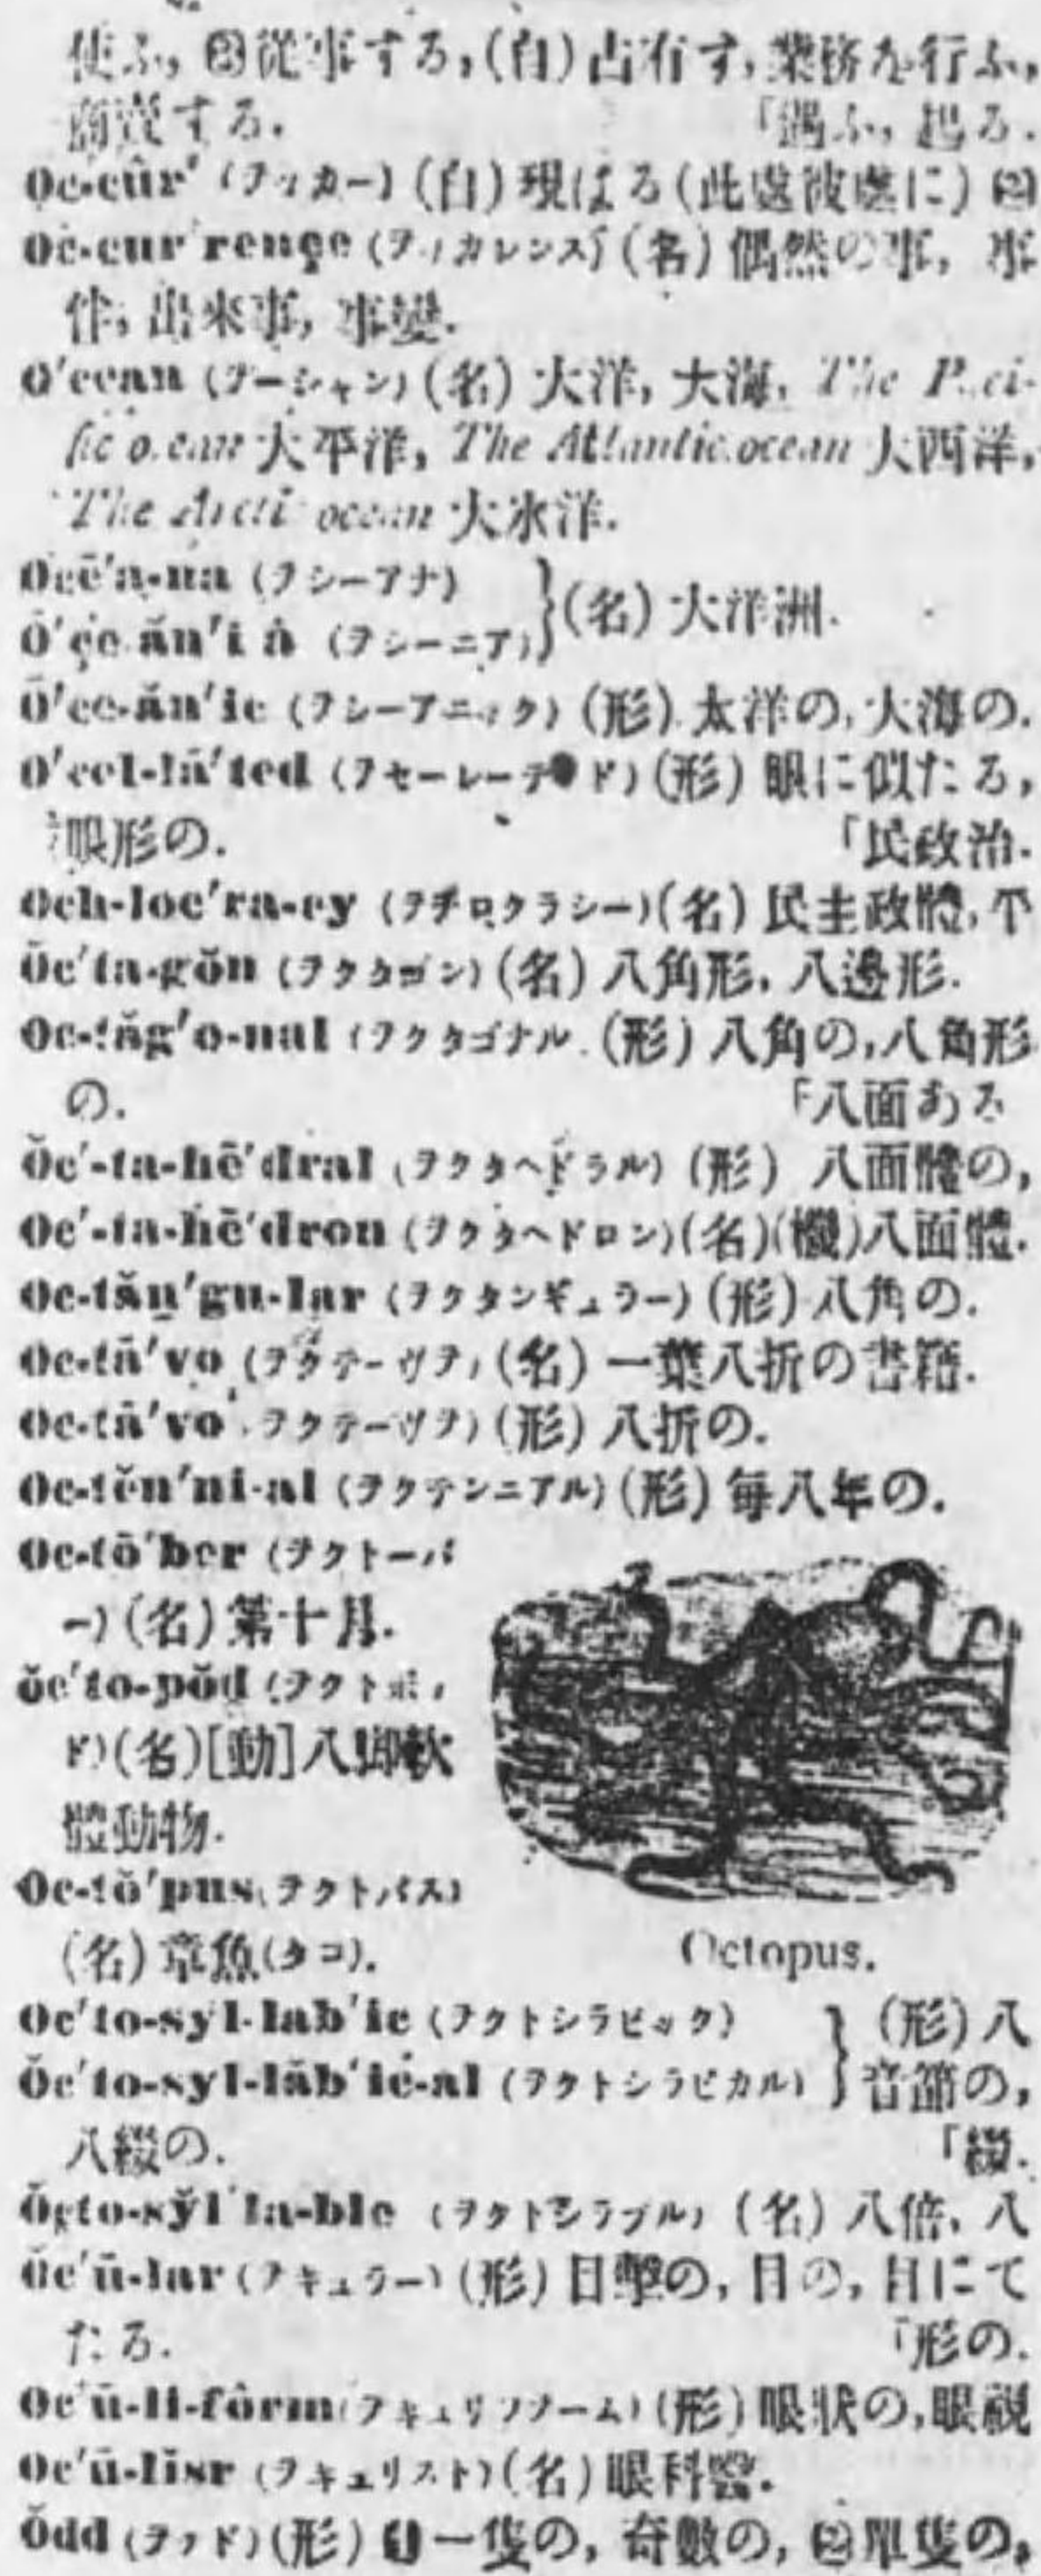 使ふ, ②從事する, (自) 占有す, 業務を行ふ,
商賣する. 「遇ふ, 起る.
Oc-cûr′ (ヲッカー) (自) 現はる (此處彼處に) ②
Oc-cur′rençe (ヲッカレンス) (名) 偶然の事, 事
件, 出來事, 事變.
O′cean (ヲーシャン) (名) 大洋, 大海, The Paci-
fic ocean 大平洋, The Atlantic ocean 大西洋,
The Arctic ocean 大氷洋.
Ocē′a-na (ヲシーアナ)
Ō′çe-ăn′i-à (ヲシーニア) } (名) 大洋洲.
Ō′ce-ăn′ic (ヲシーアニック) (形) 太洋の, 大海の.
O′cel-lā′ted (ヲセーレーテド) (形) 眼に似たる,
眼形の. 「民政治.
Och-loc′ra-cy (ヲチロクラシー) (名) 民主政體, 平
Ŏc′ta-gŏn (ヲクタゴン) (名) 八角形, 八邊形.
Oc-tăg′o-nal (ヲクタゴナル (形) 八角の, 八角形
の. 「八面ある
Ŏc′-ta-hē′dral (ヲクタヘドラル) (形) 八面體の,
Oc′-ta-hē′dron (ヲクタヘドロン) (名) (機) 八面體.
Oc-tăṉ′gu-lar (ヲクタンギュラー) (形) 八角の.
Oc-tā′vo (ヲクテーヴヲ) (名) 一葉八折の書籍.
Oc-tā′vo (ヲクテーヴヲ) (形) 八折の.
Oc-tĕn′ni-al (ヲクテンニアル) (形) 毎八年の.
Oc-tō′ber (ヲクトーバ
ー) (名) 第十月.
ŏc′to-pŏd (ヲクトポッ
ド) (名) [動] 八脚軟
體動物.
Oc-tŏ′pus (ヲクトパス)
(名) 章魚 (タコ).
Octopus.
Oc′to-syl-lab′ic (ヲクトシラビック) } (形) 八
Ŏc′to-syl-lăb′ic-al (ヲクトシラビカル) 音節の,
八綴の. 「綴.
Ŏcto-sўl′la-ble (ヲクトシラブル) (名) 八倍, 八
Ŏc′ū-lar (ヲキュラー) (形) 目撃の, 目の, 目にて
たる. 「形の.
Oc′ū-li-fôrm (ヲキュリフヲーム) (形) 眼狀の, 眼視
Oc′ū-lĭsr (ヲキュリスト) (名) 眼科醫.
Ŏdd (ヲッド) (形) ❶一隻の, 奇數の, ②單隻の,